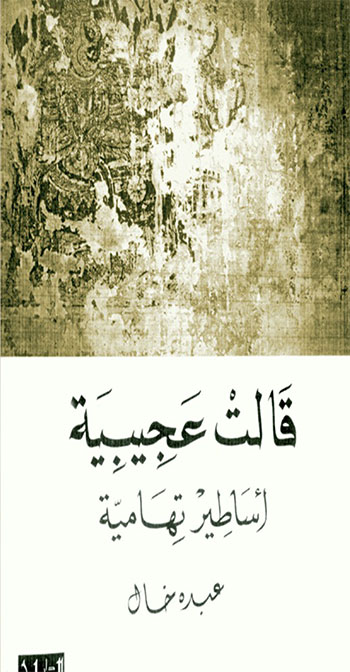 قَالتْ عَجِيبِيَة
أسَاطِيرْ تِهَاميّة
عبده خال